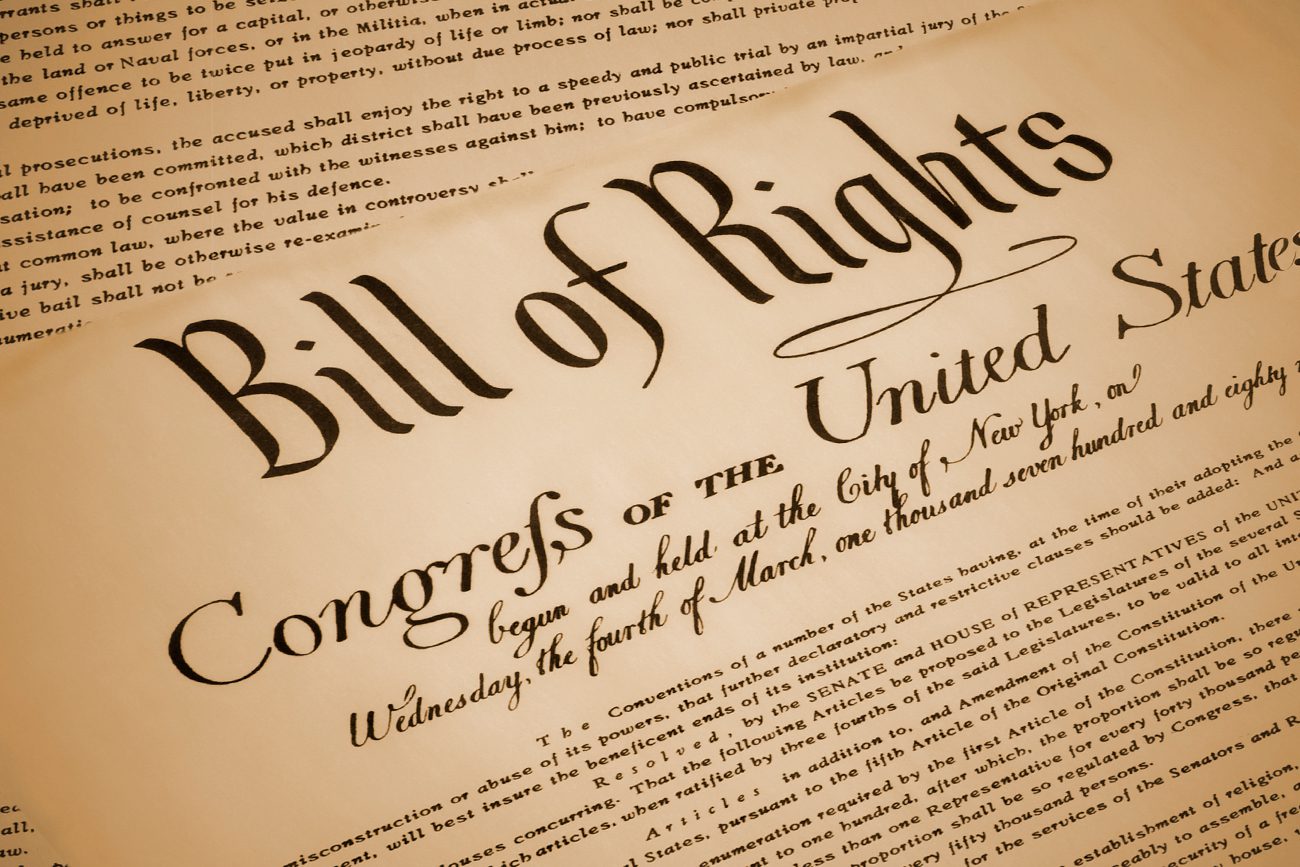 rrants shall
persons or things to be
held to answer for a capital, or
the land or Naval forces, or in the Militia, when in
same offence to be twice put in jeopardy of life or limb; nor shall be
deprived of life, liberty, or property, without due process of law; nor shall private
prosecutions, the accused shall enjoy the right to a speedy and public trial by an impartial jury of the
all have been committed, which district shall have been previously ascertained by law,
sation; to be confronted with the witnesses against him; to have
ssistance of counsel for his defence.
common law, where the value in controversy
a jury, shall be otherwise
ive bail shall not be
Bill of Rights
Congreſs OF THE United States
begun and held at the City of New York, on
Wednesday, the fourth of March, one thousand seven hundred and eighty
The Conventions of a number of the States having, at the time of their adopting the
misconstruction or abuse of its powers, that further declaratory and restrictive clauses should be added: And
will best insure the beneficent ends of its institution:
Resolved, by the SENATE and HOUSE of REPRESENTATIVES of the
ouses concurring. That the following Articles be proposed to the Legislatures of the several
articles, when ratified by three fourths of the said Legislatures, to be valid to all
Articles in addition to, and Amendment of the Constitution of the
States, pursuant to the fifth Article of the Original Constitution.
enumeration required by the first Article of the Constitution, there
to one hundred, after which, the proportion shall be so
less than one Representative for every forty thousand
proportion shall be so regulated by Congress, that
every fifty thousand persons.
for the services of the Senators and
establishment of religion,
to assemble,
of a
house,
all,